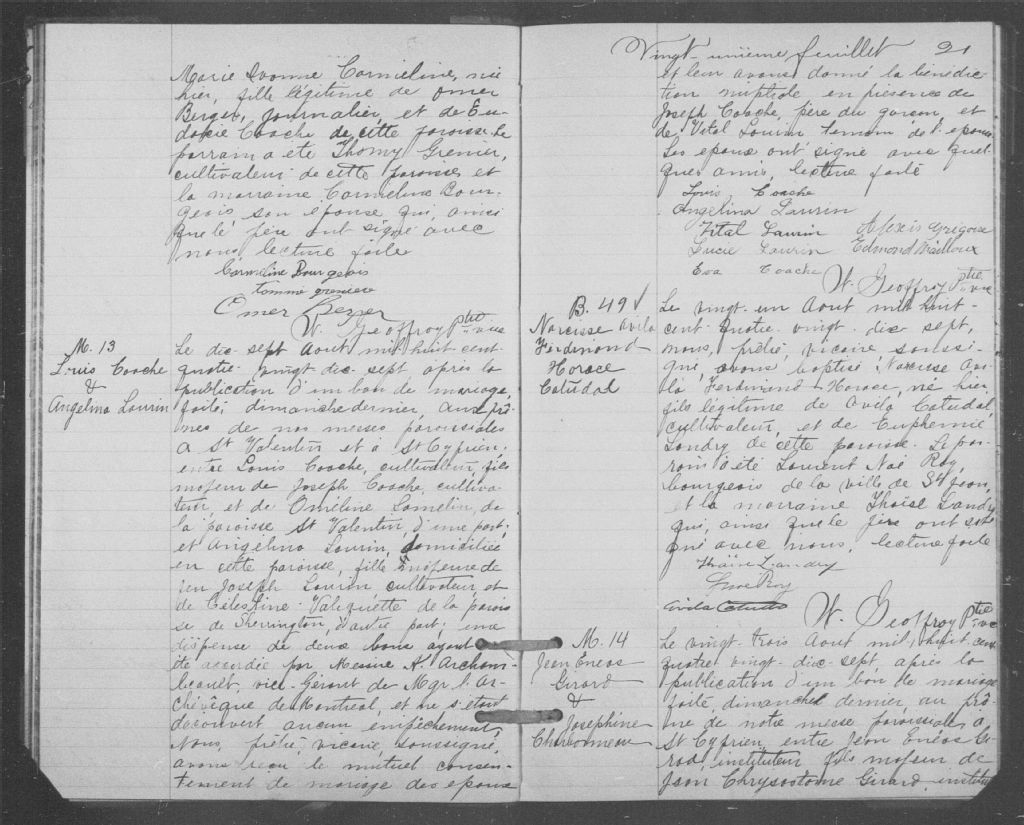 Marie Ivonne Carméline, née
hier, fille légitime de Omer
Berger, journalier, et de Eu-
doxie Coache de cette paroisse. Le
parrain a été Thomy Grenier,
cultivateur de cette paroisse et
la marraine Carméline Bour-
geois son épouse qui, ainsi
que le père ont signé avec
nous, lecture faite
Carmeline Bourgeois
tommé greniere
Omer Berger
W. Geoffroy Ptre vic
M. 13
Louis Coache
&
Angelina Laurin
Le dix-sept Aout mil huit cent
quatre vingt dix sept après la
publication d'un ban de mariage,
faite, dimanche dernier, aux prô-
nes de nos messes paroissiales
a St Valentin et à St Cyprien,
entre Louis Coache, cultivateur, fils
majeur de Joseph Coache, cultiva-
teur, et de Oméline Lamelin, de
la paroisse St Valentin, d'une part;
et Angélina Laurin, domiciliée
en cette paroisse, fille mineure de
feu Joseph Laurin cultivateur, et
de Célestine Valiquette de la parois
se de Sherrington, d'autre part; une
dispense de deux bans ayant
été accordée par Messire A. Archam-
beault, vice-Gérant de Mgr l'Ar-
chévêque de Montréal, et ne s'étant
découvert aucun empêchement,
Nous, prêtre, vicaire, soussigné,
avons reçu le mutuel consen-
tement de mariage des époux
Vingt-unième feuillet 21
et leur avons donné la bénédic
tion nuptiale en présence de
Joseph Coache, père du garçon, et
de Vital Laurin témoin de l'épouse
Les époux ont signé avec quel-
ques amis, lecture faite
Louis Coache
Angelina Laurin
Vital Laurin Alexis Grégoire
Lucie Laurin Edmond Mailloux
Eva Coache
W. Geoffroy Ptre vic
B. 49
Narcisse Avila
Ferdinand
Horace
Catudal
Le vingt-un Aout mil huit
cent quatre vingt dix sept,
nous, prêtre, vicaire soussi-
gné, avons baptisé Narcisse Avi-
la Ferdinand Horace, né hier,
fils légitime de Avila Catudal,
cultivateur, et de Euphémie
Landry de cette paroisse. Le par-
rain a été Laurent Noé Roy,
bourgeois de la ville de St Jean,
et la marraine Thaïse Landry
qui, ainsi que le père ont si-
gné avec nous, lecture faite
Thaïse Landry
Roy
Avila Catudal
W. Geoffroy Ptre vic
M. 14
Jean Enéas
Girard
&
Joséphine
Charbonneau
Le vingt-trois Aout mil huit cent
quatre vingt-dix-sept, après la
publication d'un ban de mariage
faite, dimanche dernier, au prô-
ne de notre messe paroissiale, à
St Cyprien, entre Jean Enéas Gi-
rard, instituteur, fils majeur de
Jean Chrysostome Girard, institu